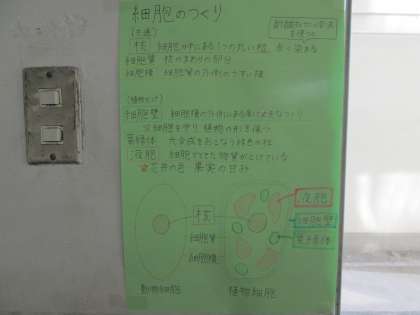 細胞のつくり
(共通)
核 細胞の中にある1つの丸い粒、赤く染まる
細胞質 核のまわりの部分
細胞膜 細胞質の外側のうすい膜
(植物だけ)
細胞壁 細胞膜の外側にある丈夫なつくり
細胞を守り 植物の形を保つ
葉緑体 光合成をおこなう緑色の粒
液胞 細胞でできた物質がとけている
★花弁の色 果実の甘み
核
細胞質
細胞膜
液胞
細胞壁
葉緑体
動物細胞
植物細胞